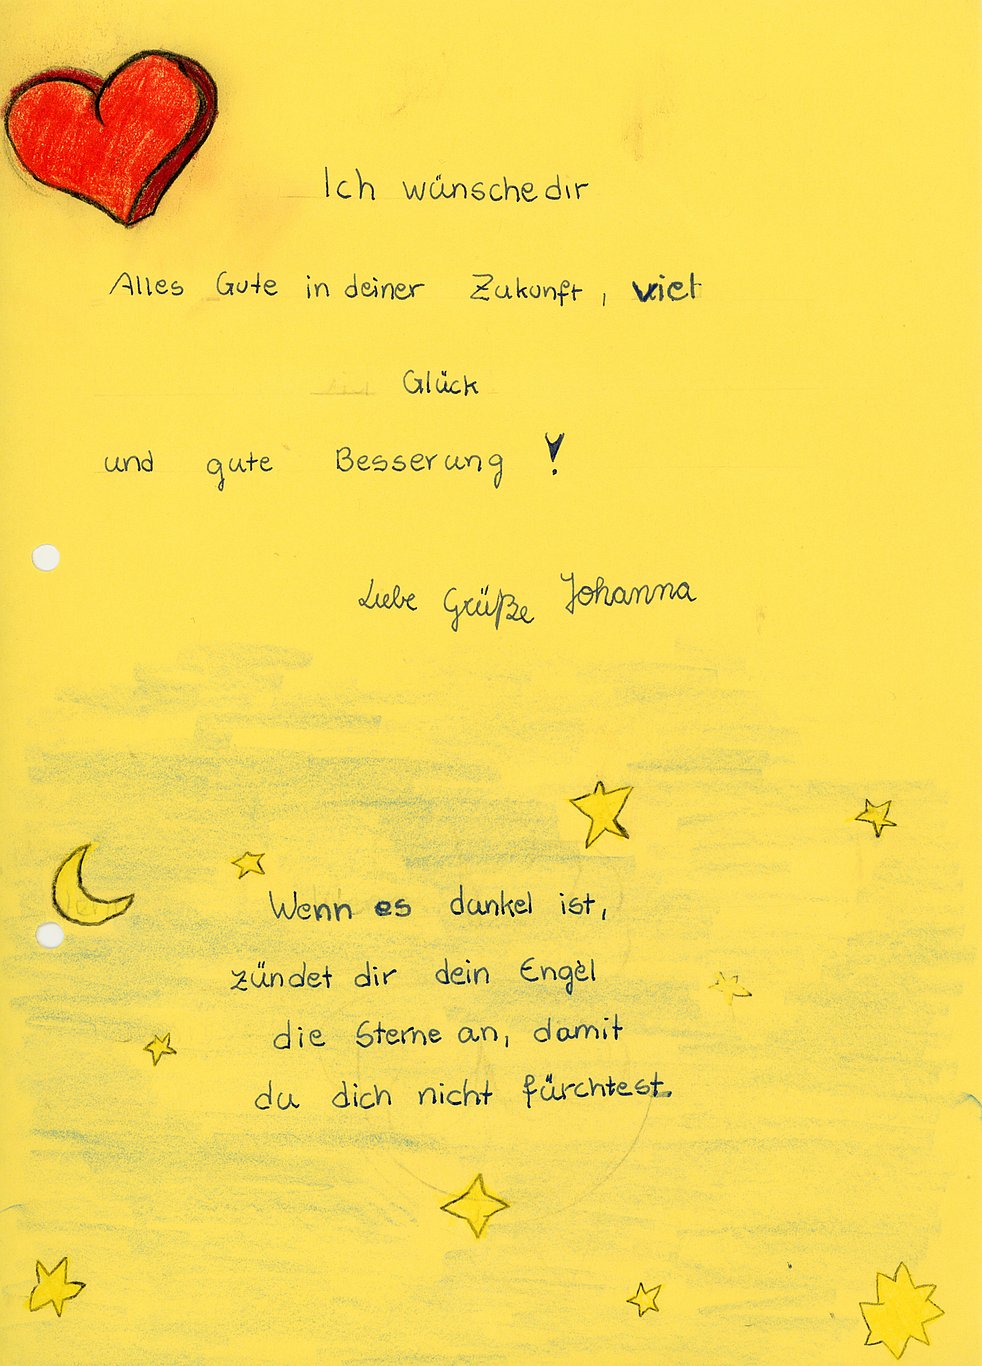 Ich wünsche dir
Alles Gute in deiner Zukunft, viel
Glück
und gute Besserung !
Liebe Grüße Johanna
Wenn es dunkel ist,
zündet dir dein Engel
die Sterne an, damit
du dich nicht fürchtest.